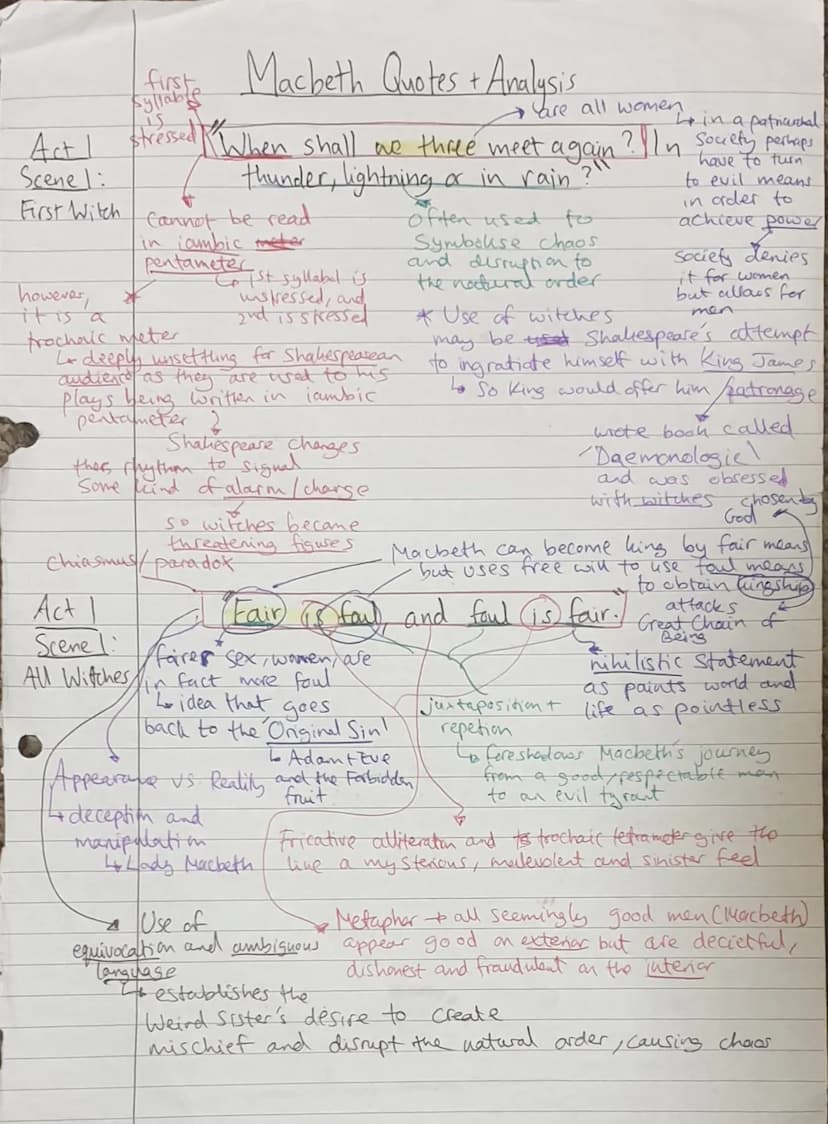 Macbeth Quotes + Analysis
first
syllable
is
stressed
Act 1
Scene 1:
First Witch
"When shall we three meet again? In
thunder, lightning or in rain?"
are all women
in a patriarchal
society perhaps
have to turn
to evil means
in order to
achieve power
society denies
it for women
but allows for
men
Cannot be read
in iambic meter
pentameter
1st syllabel is
unstressed, and
2nd is stressed
however,
it is a
trochaic meter
deeply unsettling for Shakespearean
audience as they are used to his
plays being written in iambic
pentameter
Shakespeare changes
the rhythm to signal
some kind of alarm/charge
so witches become
threatening figures
often used to
Symbolise chaos
and disruption to
the natural order
* Use of witches
may be used Shakespeare's attempt
to ingratiate himself with King James
So King would offer him patronage
wrote book called
'Daemonologie'
and was obsessed
with witches
chosen by
God
Chiasmus/paradox
Macbeth can become king by fair means
but uses free will to use foul means
to obtain kingship
attacks
Great Chain of
Being
Act 1
Scene 1:
All Witches
"Fair is foul, and foul is fair."
fairer sex, women, are
in fact more foul
idea that goes
back to the 'Original Sin'
Adam+Eve
and the Forbidden
fruit
juxtaposition +
repetion
foreshadows Macbeth's journey
from a good/respectable man
to an evil tyrant
nihilistic statement
as paints world and
life as pointless
Appearance vs Reality
deception and
manipulation
Lady Macbeth
Fricative alliteration and trochaic tetrameter give the
line a mysterious, malevolent and sinister feel
Metaphor → all seemingly good men (Macbeth)
appear good on exterior but are decietful,
dishonest and fraudulent on the interior
Use of
equivocation and ambiguous
language
establishes the
Weird Sister's desire to create
mischief and disrupt the natural order, causing chaos